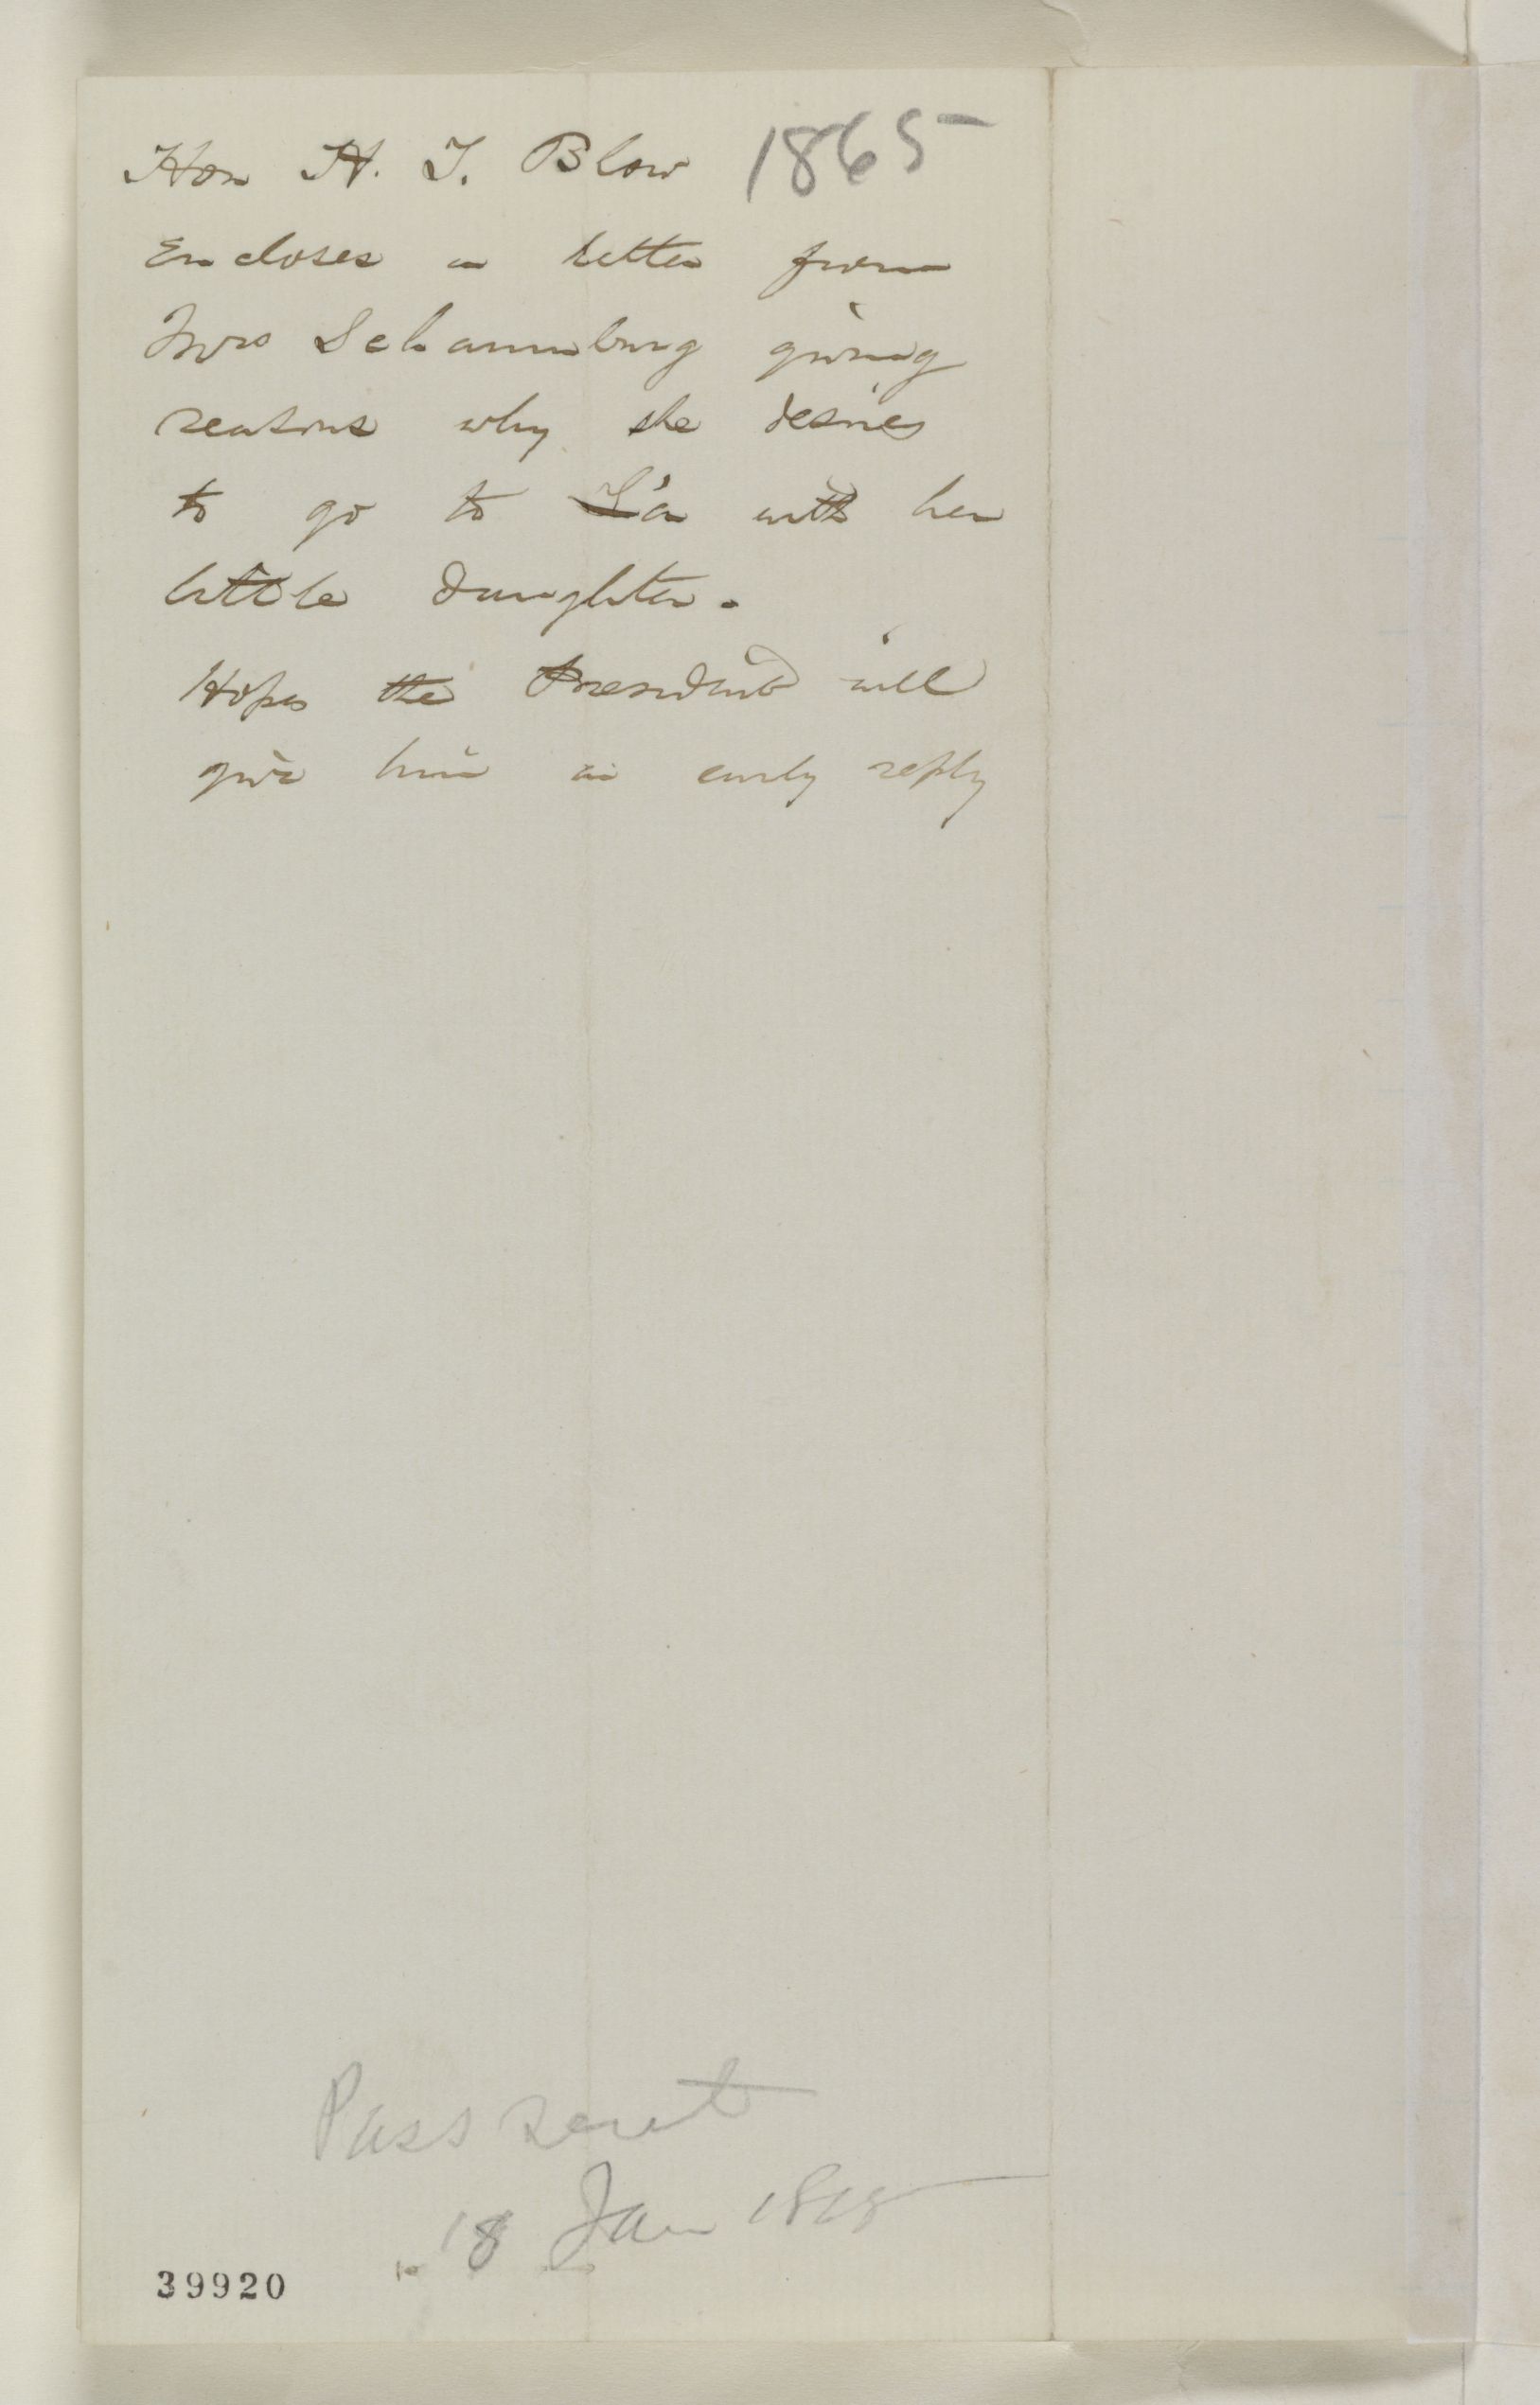 Hon H. T. Blow 1865
Encloses a letter from
Mrs Schaumburg giving
reasons why she desires
to go to La with her
little daughter.
Hopes the President will
give him an early reply
Pass sent
18 Jan 1865
39920